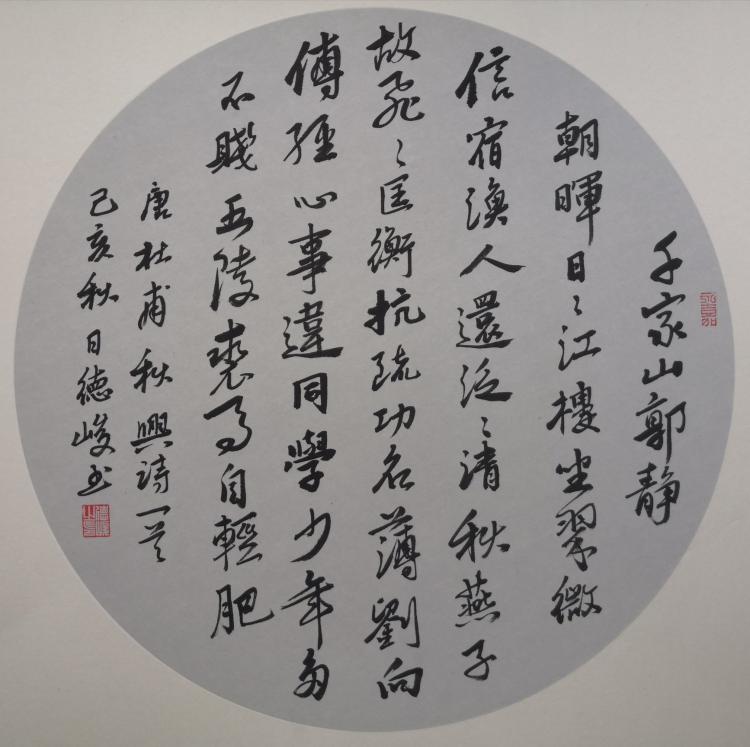 千家山郭静
朝暉日〻江樓坐翠微
信宿漁人還泛〻清秋燕子
故飛〻匡衡抗疏功名薄劉向
傳經心事違同學少年多
不賤五陵裘馬自輕肥
唐杜甫秋興詩一首
己亥秋日德峻书
永嘉